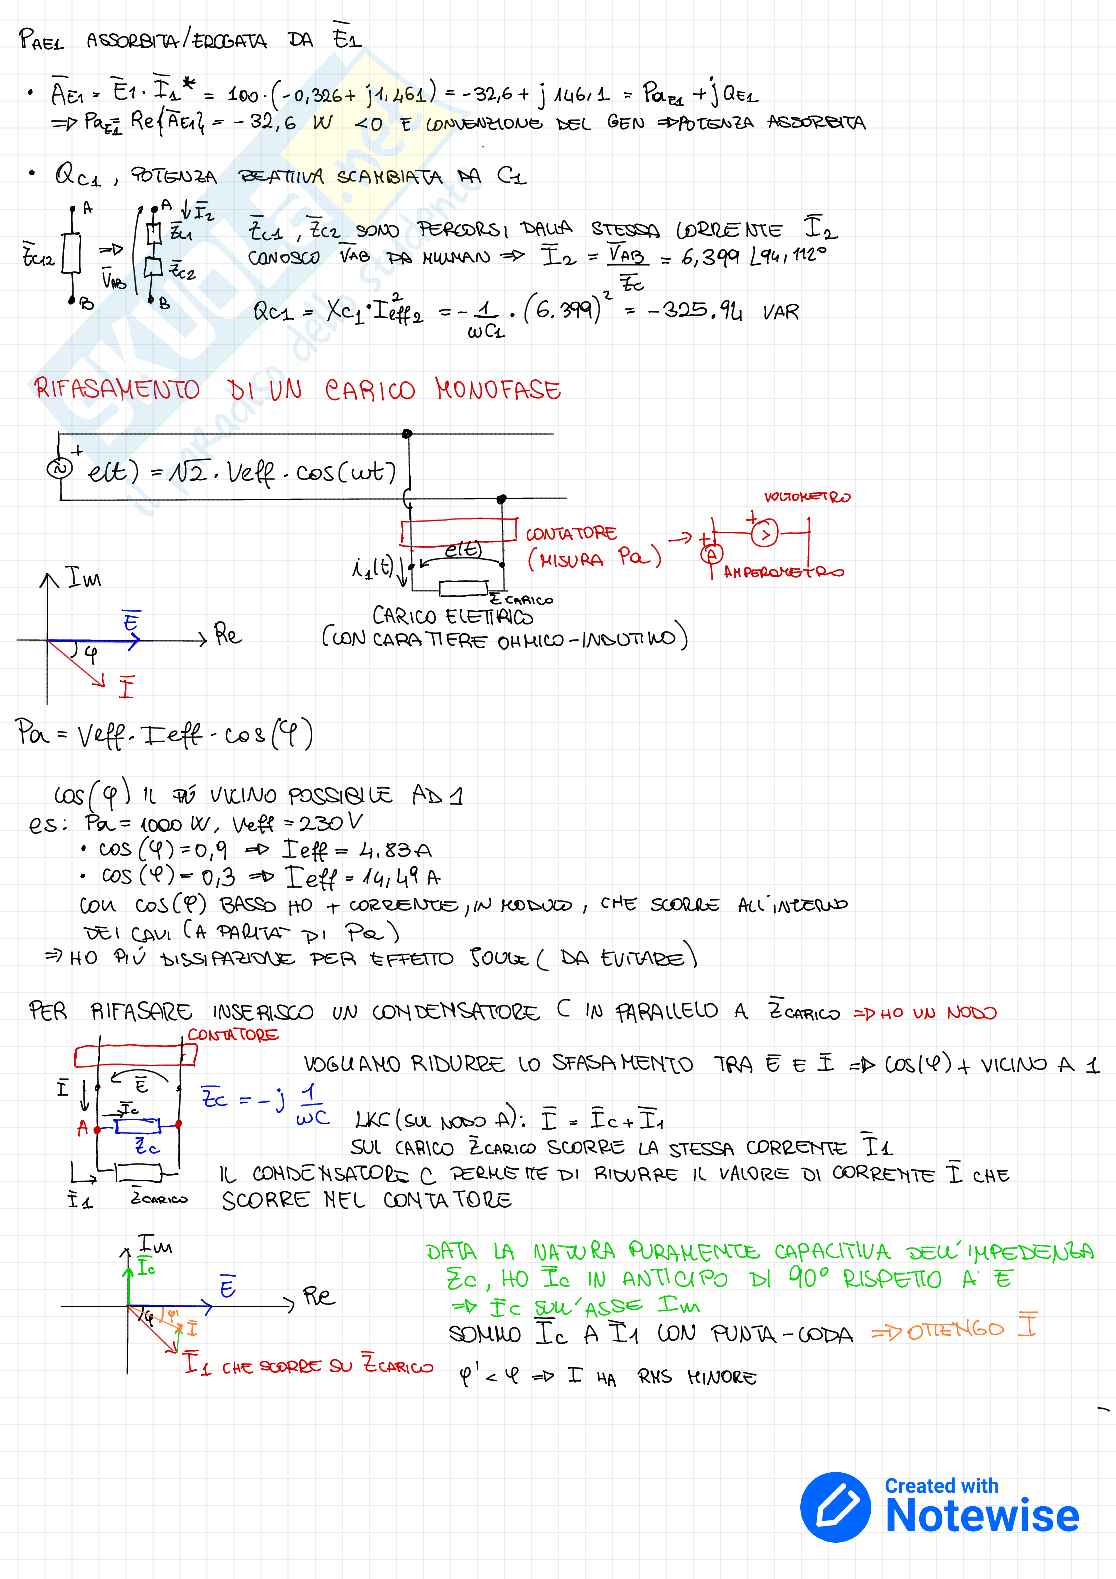 PAE1 ASSORBITA/EROGATA DA Ē1
• ĀE1 = Ē1 · Ī1* = 100·(-0,326+ j1,461) = -32,6 + j 146,1 = PaE1 + jQE1
⇒ PaE1 = Re{ĀE1} = -32,6 W <0 E CONVENZIONE DEL GEN ⇒ POTENZA ASSORBITA
• QC1, POTENZA REATTIVA SCAMBIATA DA C1
A
A ↓Ī2
Z̄C12 ⇒ V̄AB Z̄C1 Z̄C2
B
B
Z̄C1, Z̄C2 SONO PERCORSI DALLA STESSA CORRENTE Ī2
CONOSCO V̄AB DA MILLMAN ⇒ Ī2 = V̄AB / Z̄C = 6,399 ∠94,112°
QC1 = XC1·Ieff2² = -1/ωC1 · (6.399)² = -325.94 VAR
RIFASAMENTO DI UN CARICO MONOFASE
+ e(t) = √2 · Veff · cos(ωt)
VOLTOMETRO
CONTATORE → + + V
(MISURA Pa) A
AMPEROMETRO
e(t)
i1(t)↓
Z̄CARICO
CARICO ELETTRICO
(CON CARATTERE OHMICO-INDUTTIVO)
Im
Ē
Re
φ
Ī
Pa = Veff · Ieff · cos(φ)
cos(φ) IL PIÙ VICINO POSSIBILE AD 1
es: Pa = 1000 W, Veff = 230 V
• cos(φ)=0,9 ⇒ Ieff = 4.83 A
• cos(φ)= 0,3 ⇒ Ieff = 14,49 A
CON cos(φ) BASSO HO + CORRENTE, IN MODULO, CHE SCORRE ALL'INTERNO
DEI CAVI (A PARITÀ DI Pa)
⇒ HO PIÚ DISSIPAZIONE PER EFFETTO JOULE (DA EVITARE)
PER RIFASARE INSERISCO UN CONDENSATORE C IN PARALLELO A Z̄CARICO ⇒ HO UN NODO
CONTATORE
VOGLIAMO RIDURRE LO SFASAMENTO TRA Ē E Ī ⇒ cos(φ) + VICINO A 1
Ī ↓ Ē
Z̄C = -j 1/ωC
ĪC
A
Z̄C
LKC (SUL NODO A): Ī = ĪC + Ī1
SUL CARICO Z̄CARICO SCORRE LA STESSA CORRENTE Ī1
IL CONDENSATORE C PERMETTE DI RIDURRE IL VALORE DI CORRENTE Ī CHE
SCORRE NEL CONTATORE
Ī1 Z̄CARICO
Im
ĪC
Ē
Re
φ φ' Ī
Ī1 CHE SCORRE SU Z̄CARICO
DATA LA NATURA PURAMENTE CAPACITIVA DELL'IMPEDENZA
Z̄C, HO ĪC IN ANTICIPO DI 90° RISPETTO A Ē
⇒ ĪC SULL'ASSE Im
SOMMO ĪC A Ī1 CON PUNTA-CODA ⇒ OTTENGO Ī
φ' < φ ⇒ I HA RMS MINORE
Created with
Notewise